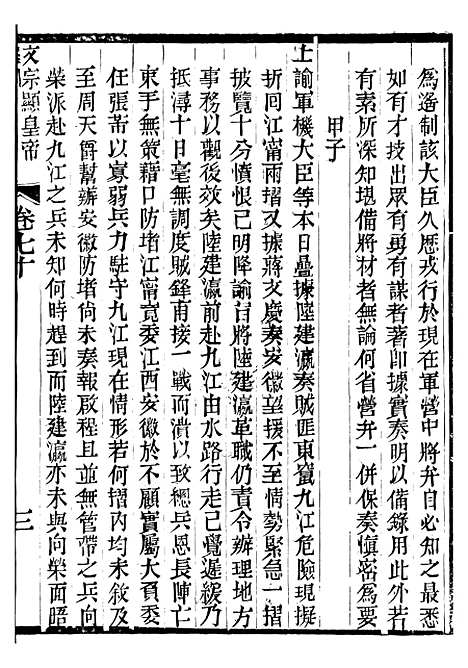 為遙制該大臣久歷戎行於現在軍營中將弁自必知之最悉
如有才技出眾有勇有謀者著即據實奏明以備錄用此外若
有素所深知堪備將材者無論何省營弁一併保奏慎密為要
甲子
上諭軍機大臣等本日疊據陸建瀛奏賊匪東竄九江危險現擬
折回江甯兩摺又據蔣文慶奏安徽望援不至情勢緊急一摺
披覽十分憤恨已明降諭旨將陸建瀛革職仍責令辦理地方
事務以觀後效矣陸建瀛前赴九江由水路行走已覺遲緩乃
抵潯十日毫無調度賊鋒甫接一戰而潰以致總兵恩長陣亡
束手無策藉口防堵江甯竟委江西安徽於不顧實屬大負委
任張芾以寡弱兵力駐守九江現在情形若何摺內均未敘及
至周天爵幫辦安徽防堵尚未奏報啟程且並無管帶之兵向
榮派赴九江之兵未知何時趕到而陸建瀛亦未與向榮面晤
文宗顯皇帝
卷七十
三